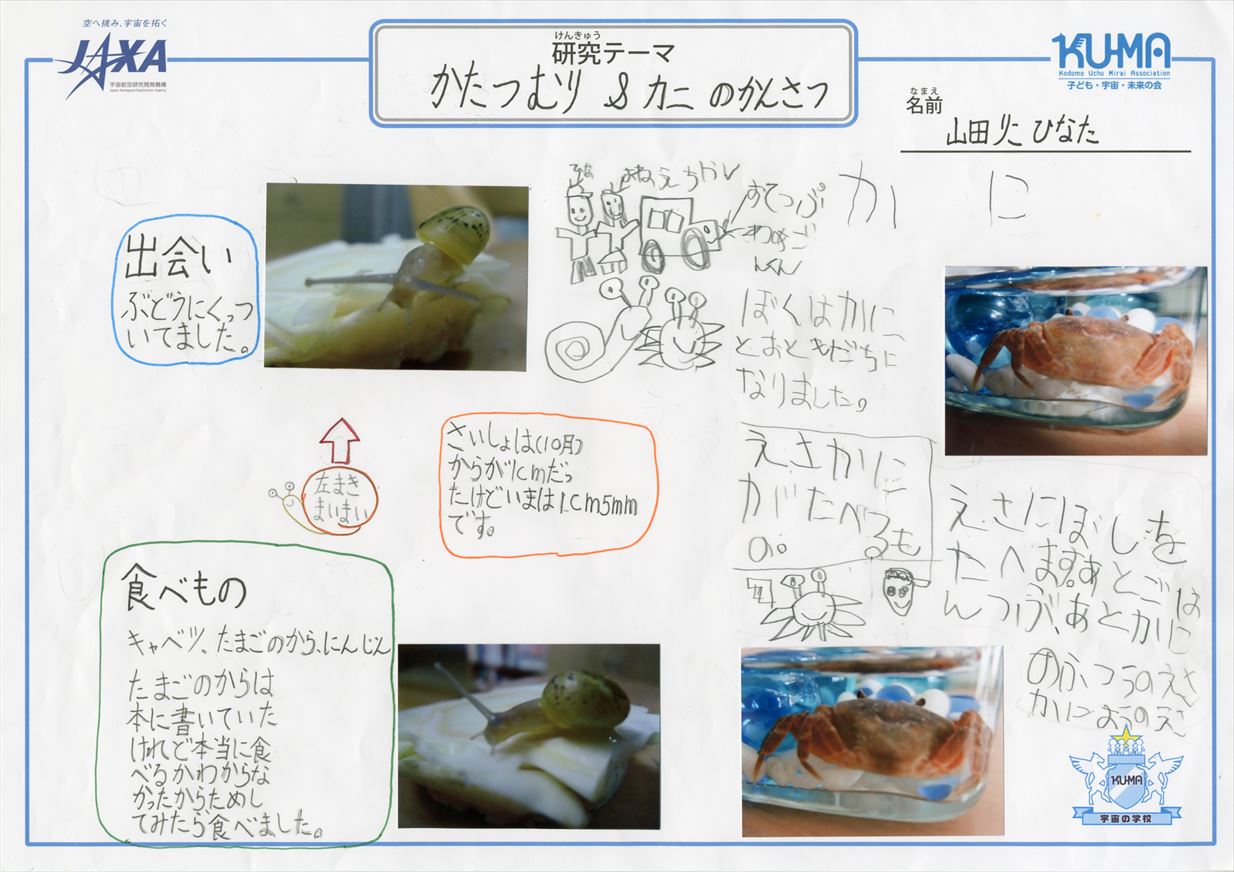 空へ挑み、宇宙を拓く
JAXA
宇宙航空研究開発機構
Japan Aerospace Exploration Agency
けんきゅう
研究テーマ
かたつむり & カニ のかんさつ
KU-MA
Kodomo Uchu Mirai Association
子ども・宇宙・未来の会
なまえ
名前
山田 りこ ひなた
出会い
ぶどうにくっつ
いてました。
左まき
まいまい
さいしょは(10月)
からが1cmだっ
たけどいまは1cm5mm
です。
食べもの
キャベツ、たまごのから、にんじん
たまごのからは
本に書いていた
けれど本当に食
べるかわからな
かったからためし
てみたら食べました。
ひな
おねえちゃん
かに
ぼくはかに
とおともだちに
なりました。
えさかに
がたべるも
の。
えさにぼしを
たべます。あとごは
んつぶ、あとかに
のふつうのえさ
かにようのえさ
KU-MA
宇宙の学校